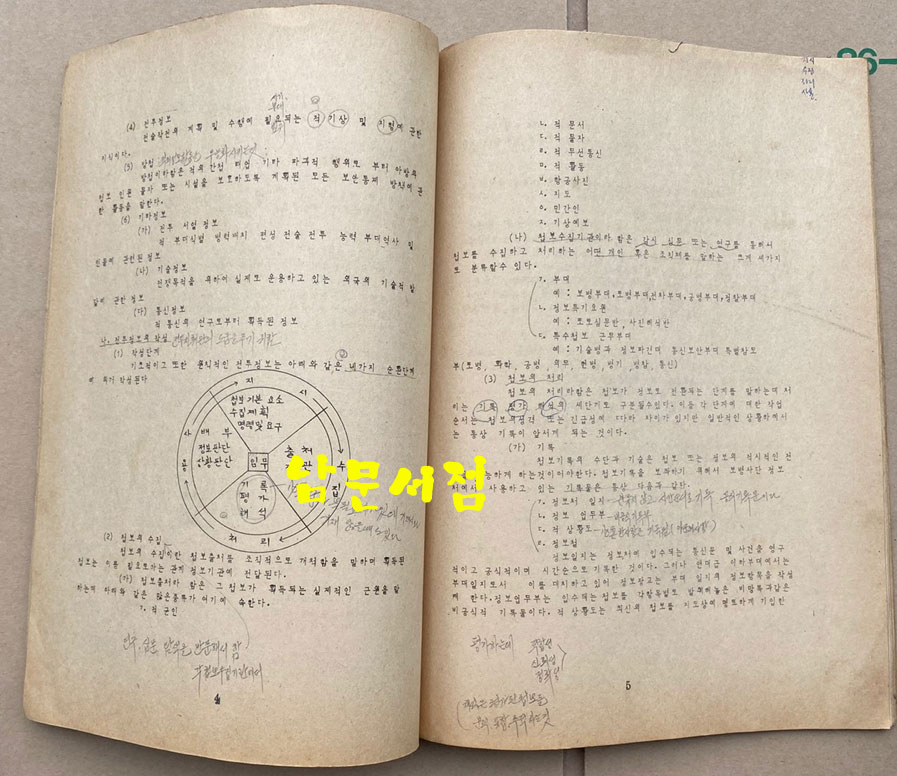 (4) 전투정보
전술작전의 계획 및 수행에 필요되는 적 기상 및 지형에 관한
지식이다.
(5) 방첩
방첩이라함은 적의 간첩 태업 기타 파괴적 행위로 부터 아방의
첩보 인원 물자 또는 시설을 보호하도록 계획된 모든 보안통제 방책에 관
한 활동을 말한다.
(6) 기타정보
(가) 전투 서열 정보
적 부대식별 병력배치 편성 전술 전투 능력 부대역사 및
인물에 관련된 정보
(나) 기술정보
전쟁목적을 위하여 실제로 운용하고 있는 외국의 기술적 발
달에 관한 정보
(다) 통신정보
적 통신의 연구로부터 획득된 정보
나. 전투정보의 작성
(1) 작성단계
기초적이고 또한 원칙적인 전투정보는 아래와 같은 네가지 순환단계
에 의거 작성된다
지 시
첩보기본 요소
수집계획
명령및요구
사 용
배 부
정보판단
상황판단
임무
출처
관
수 집
기 록
평 가
해 석
처 리
(2) 첩보의 수집
첩보의 수집이란 첩보출처를 조직적으로 개척함을 말하며 획득된
첩보는 이를 필요로하는 관계 정보기관에 전달된다.
(가) 첩보출처라 함은 그 첩보가 획득되는 실제적인 근원을 말
하는데 아래와 같은 많은종류가 여기에 속한다.
ㄱ. 적 군인
4
남문서점
86-
ㄴ. 적 문서
ㄷ. 적 물자
ㄹ. 적 무선통신
ㅁ. 적 활동
ㅂ. 항공사진
ㅅ. 지도
ㅇ. 민간인
ㅈ. 기상예보
(나) 첩보수집기관이라 함은 감시 심문 또는 연구를 통해서
첩보를 수집하고 처리하는 어떤 개인 혹은 조직체를 말하는 크게 세가지
로 분류할수 있다.
ㄱ. 부대
예 : 보병부대, 포병부대, 전차부대, 공병부대, 정찰부대
ㄴ. 정보특기요원
예 : 포로심문반, 사진해석반
ㄷ. 특수첩보 근무부대
예 : 기술병과 정보파견대 통신보안부대 특별참모
부(포병, 화학, 공병, 의무, 헌병, 병기, 정탐, 통신)
(3) 첩보의 처리
첩보의 처리라함은 첩보가 정보로 전환되는 단계를 말하는데 처
리는 기록 평가 해석의 세단계로 구분될수있다. 이들 각 단계에 대한 작업
순서는 첩보의성격 또는 긴급성에 따라 차이가 있지만 일반적인 상황하에서
는 통상 기록이 앞서게 되는 것이다.
(가) 기록
첩보기록의 수단과 기술은 첩보 또는 정보의 적시적인 전
하게 하는것이어야한다. 첩보기록을 보좌하기 위해서 보병사단 정보
처에서 사용하고 있는 기록물은 통상 다음과 같다.
ㄱ. 정보처 일지
ㄴ. 정보 업무부
ㄷ. 적 상황도
ㄹ. 정보철
정보일지는 정보처에 입수되는 통신문 및 사건을 영구
적이고 공식적이며 시간순으로 기록한 것이다. 그러나 연대급 이하부대에서는
부대일지로서 이를 대치하고있어 정보장교는 부대 일지의 정보항목을 작성
케 한다. 정보업무부는 입수되는첩보를 각항목별로 발췌해놓은 비망록과같은
비공식적 기록물이다. 적 상황도는 최신의 첩보를 지도상에 명료하게 기입한
평가하는데
5